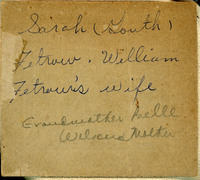 Sarah (South)
Fetrow. William
Fetrow's wife
Grandmother Belle
Mother